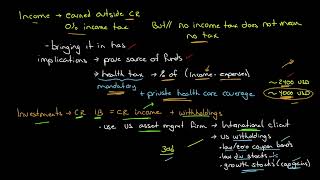 Income → earned outside CR
0% income tax
But!! no income tax does not mean
no tax
- bringing it in has
implications → prove source of funds
→ health tax → % of (income - expenses)
mandatory
+ private health care coverage
~ 2400 USD
~ 4000 USD
Investments → CR IB = CR income + withholdings
- use US asset mgmt firm → International client
→ US withholdings
- low/zero coupon bonds
- low div stocks
- growth stocks (cap gains)